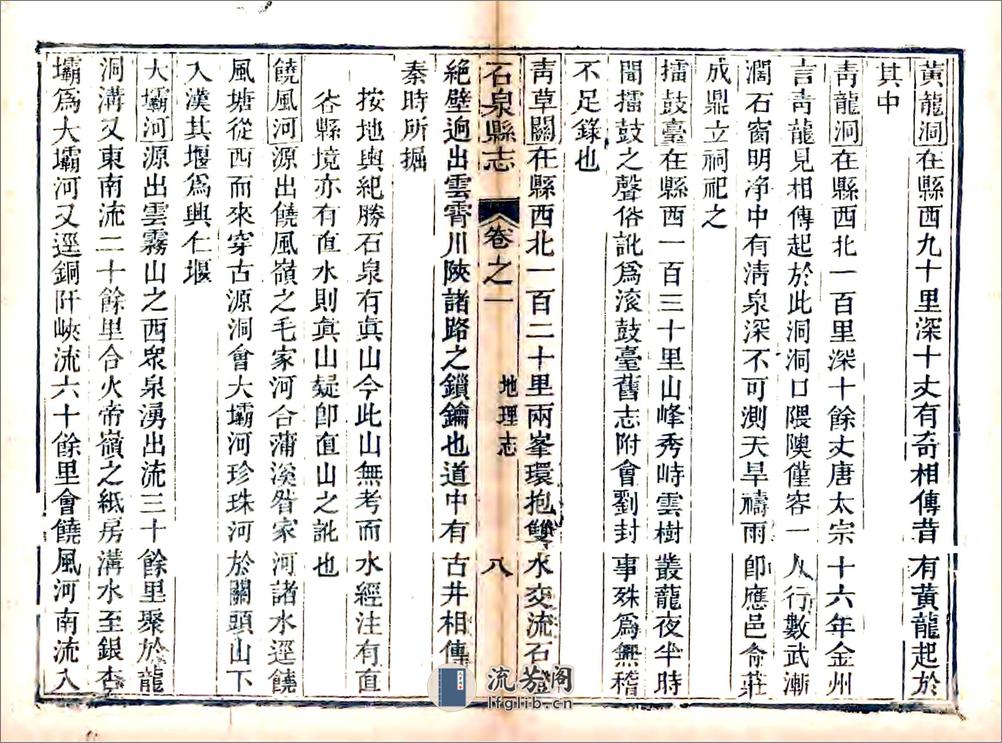 黃龍洞在縣西九十里深十丈有奇相傳昔有黃龍起於
其中
靑龍洞在縣西北一百里深十餘丈唐太宗十六年金州
言靑龍見相傳起於此洞洞口隈隩僅容一人行數武漸
濶石窗明净中有淸泉深不可測天旱禱雨卽應邑侖莊
成鼎立祠祀之
擂鼓臺在縣西一百三十里山峰秀峙雲樹叢龍夜半時
聞擂鼓之聲俗訛爲滾鼓臺舊志附會劉封事殊爲無稽
不足錄也
靑草關在縣西北一百二十里兩峯環抱雙水交流石磴
石泉縣志 卷之一 地理志 八
絕壁逈出雲霄川陝諸路之鎖鑰也道中有古井相傳
秦時所掘
按地輿紀勝石泉有眞山今此山無考而水經注有直
谷縣境亦有直水則眞山疑卽直山之訛也
饒風河源出饒風嶺之毛家河合蒲溪昝家河諸水逕饒
風塘從西而來穿古源洞會大壩河珍珠河於關頭山下
入漢其堰爲興仁堰
大壩河源出雲霧山之西衆泉湧出流三十餘里聚於龍
洞溝又東南流二十餘里合火帝嶺之紙房溝水至銀杏
壩爲大壩河又逕銅阡峽流六十餘里會饒風河南流入
流芳阁
lfglib.cn